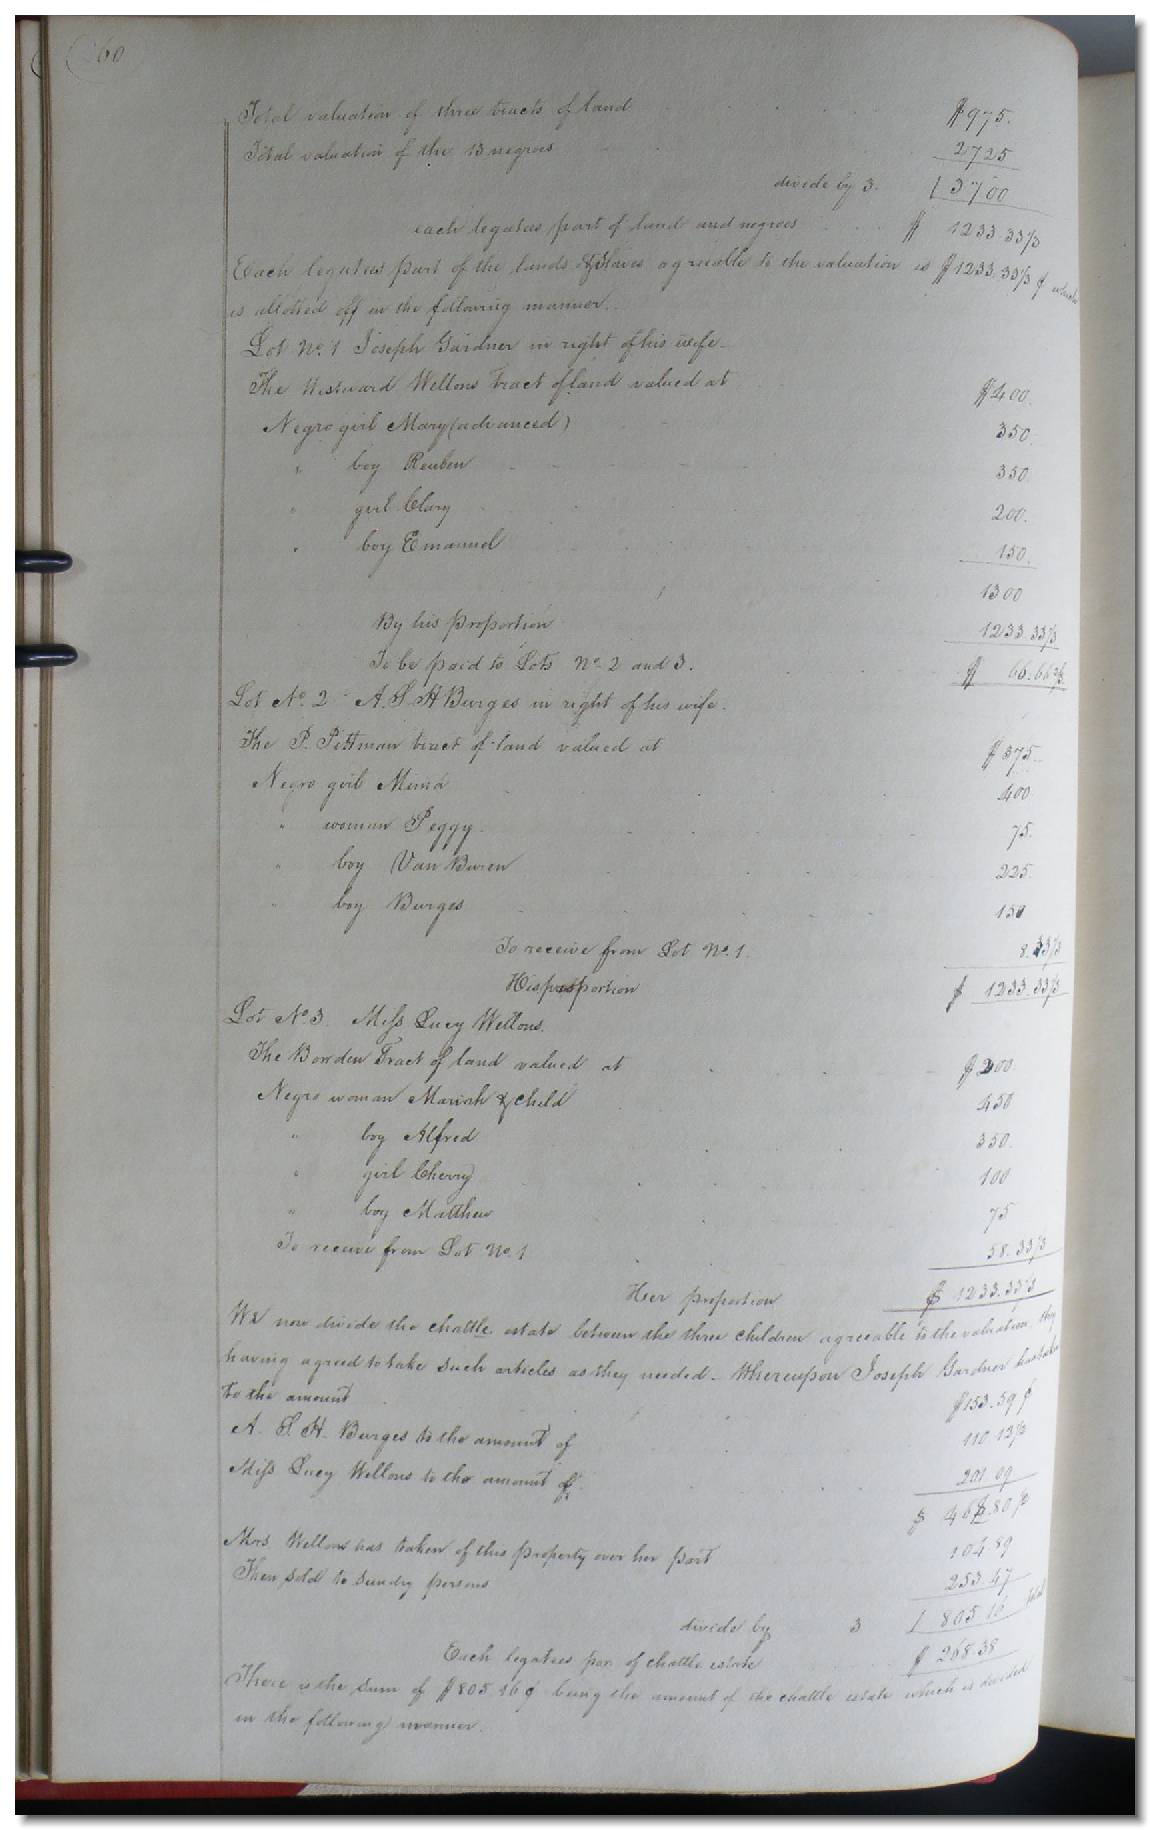 60
Total valuation of three tracts of land $975.
Total valuation of the 13 negroes 2725
divide by 3. 3700
each legatees part of land and negroes $ 1233.33/3
Each legatees part of the lands & slaves agreeable to the valuation is $1233.33/3 ¢ which
is allotted off in the following manner.
Lot No. 1 Joseph Gardner in right of his wife
The Westward Wellons Tract of land valued at $400.
Negro girl Mary (advanced) 350.
" boy Reuben 350.
" girl Clary 200.
" boy Emanuel 150.
1300
By his proportion 1233.33/3
To be paid to Lots No. 2 and 3. $ 66.66 2/3
Lot No. 2 A. S. H Burges in right of his wife.
The P. Pittman tract of land valued at $375
Negro girl Mima 400
" woman Peggy 75.
" boy Van Buren 225.
" boy Burges 150
To receive from Lot No. 1. 8.33/3
His proportion $ 1233.33/3
Lot No 3. Miss Lucy Wellons.
The Bowden Tract of land valued at $200.
Negro woman Mariah & child 450
" boy Alfred 350.
" girl Cherry 100
" boy Matthew 75
To receive from Lot No. 1 58.33/3
Her proportion $ 1233.33/3
We now divide the chattle estate between the three children agreeable to the valuation, they
having agreed to take such articles as they needed. Whereupon Joseph Gardner has taken
to the amount $153.59 ¢
A. S. H. Burges to the amount of 110 12/2
Miss Lucy Wellons to the amount of 201 09
$ 464.80/2
Mrs. Wellons has taken of this property over her part 104 89
Then sold to sundry persons 253.47
divide by 3 805 16 total
Each legatees par. of chattle estate $ 268.38
There is the sum of $805.16 ¢ being the amount of the chattle estate which is divided
in the following manner.